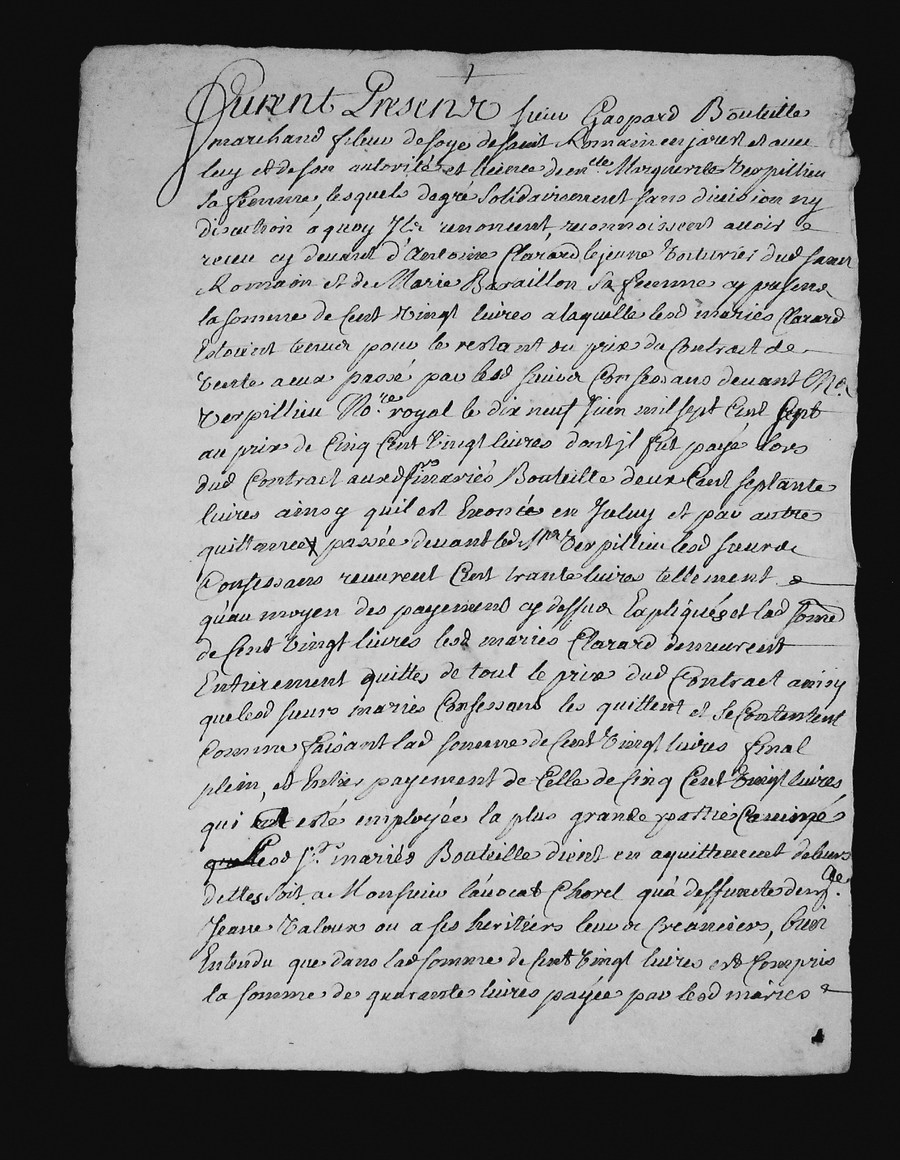 Furent Presens sieur Gaspard Bouteille
marchand fileur de soye de saint Romain en jarest et avec
luy et de son autorité et licence dem.lle Marguerite Verpillieu
sa femme, lesquels de gré solidairement sans division ny
discution a quoy Ils renoncent, reconnoissent avoir
receu cy devant d'Antoine Clarard le jeune Voiturier dud saint
Romain et de Marie Baraillon sa femme cy presens
la somme de Cent Vingt livres a laquelle lesd mariés Clarard
Estoient tenus pour le restant du prix du Contract de
Vente a eux passé par lesd sieurs Confessans devant Me
Verpillieu No.re royal le dix neuf Juin mil sept Cent sept
au prix de Cinq Cent Vingt livres dont jl fut payé lors
dud Contract auxd srs mariés Bouteille deux Cent septante
livres ainsy quil est Enoncé en Jceluy et par autre
quittance passée devant led Me Verpillieu lesd sieurs
Confessans receurent Cent trante livres tellement
qu'au moyen des payement cy dessus Expliqués et lad some
de Cent Vingt livres lesd mariés Clarard demeurent
Entierement quittes de tout le prix dud Contract ainsy
que lesd sieurs mariés Confessans les quittent et se Contentent
Comme faisant lad somme de Cent Vingt livres final
plein, et Entier payement de Celle de Cinq Cent Vingt livres
qui esté employée la plus grande partie
lesd srs mariés Bouteille dient en aquittement de leurs
dettes soit a Monsieur lavocat Chorel qu'a deffuncte dem.lle
Jeane Valour ou a ses heritiers leurs Creanciers, bien
Entendu que dans lad somme de Cent Vingt livres est Compris
la somme de quarante livres payée par lesd mariés